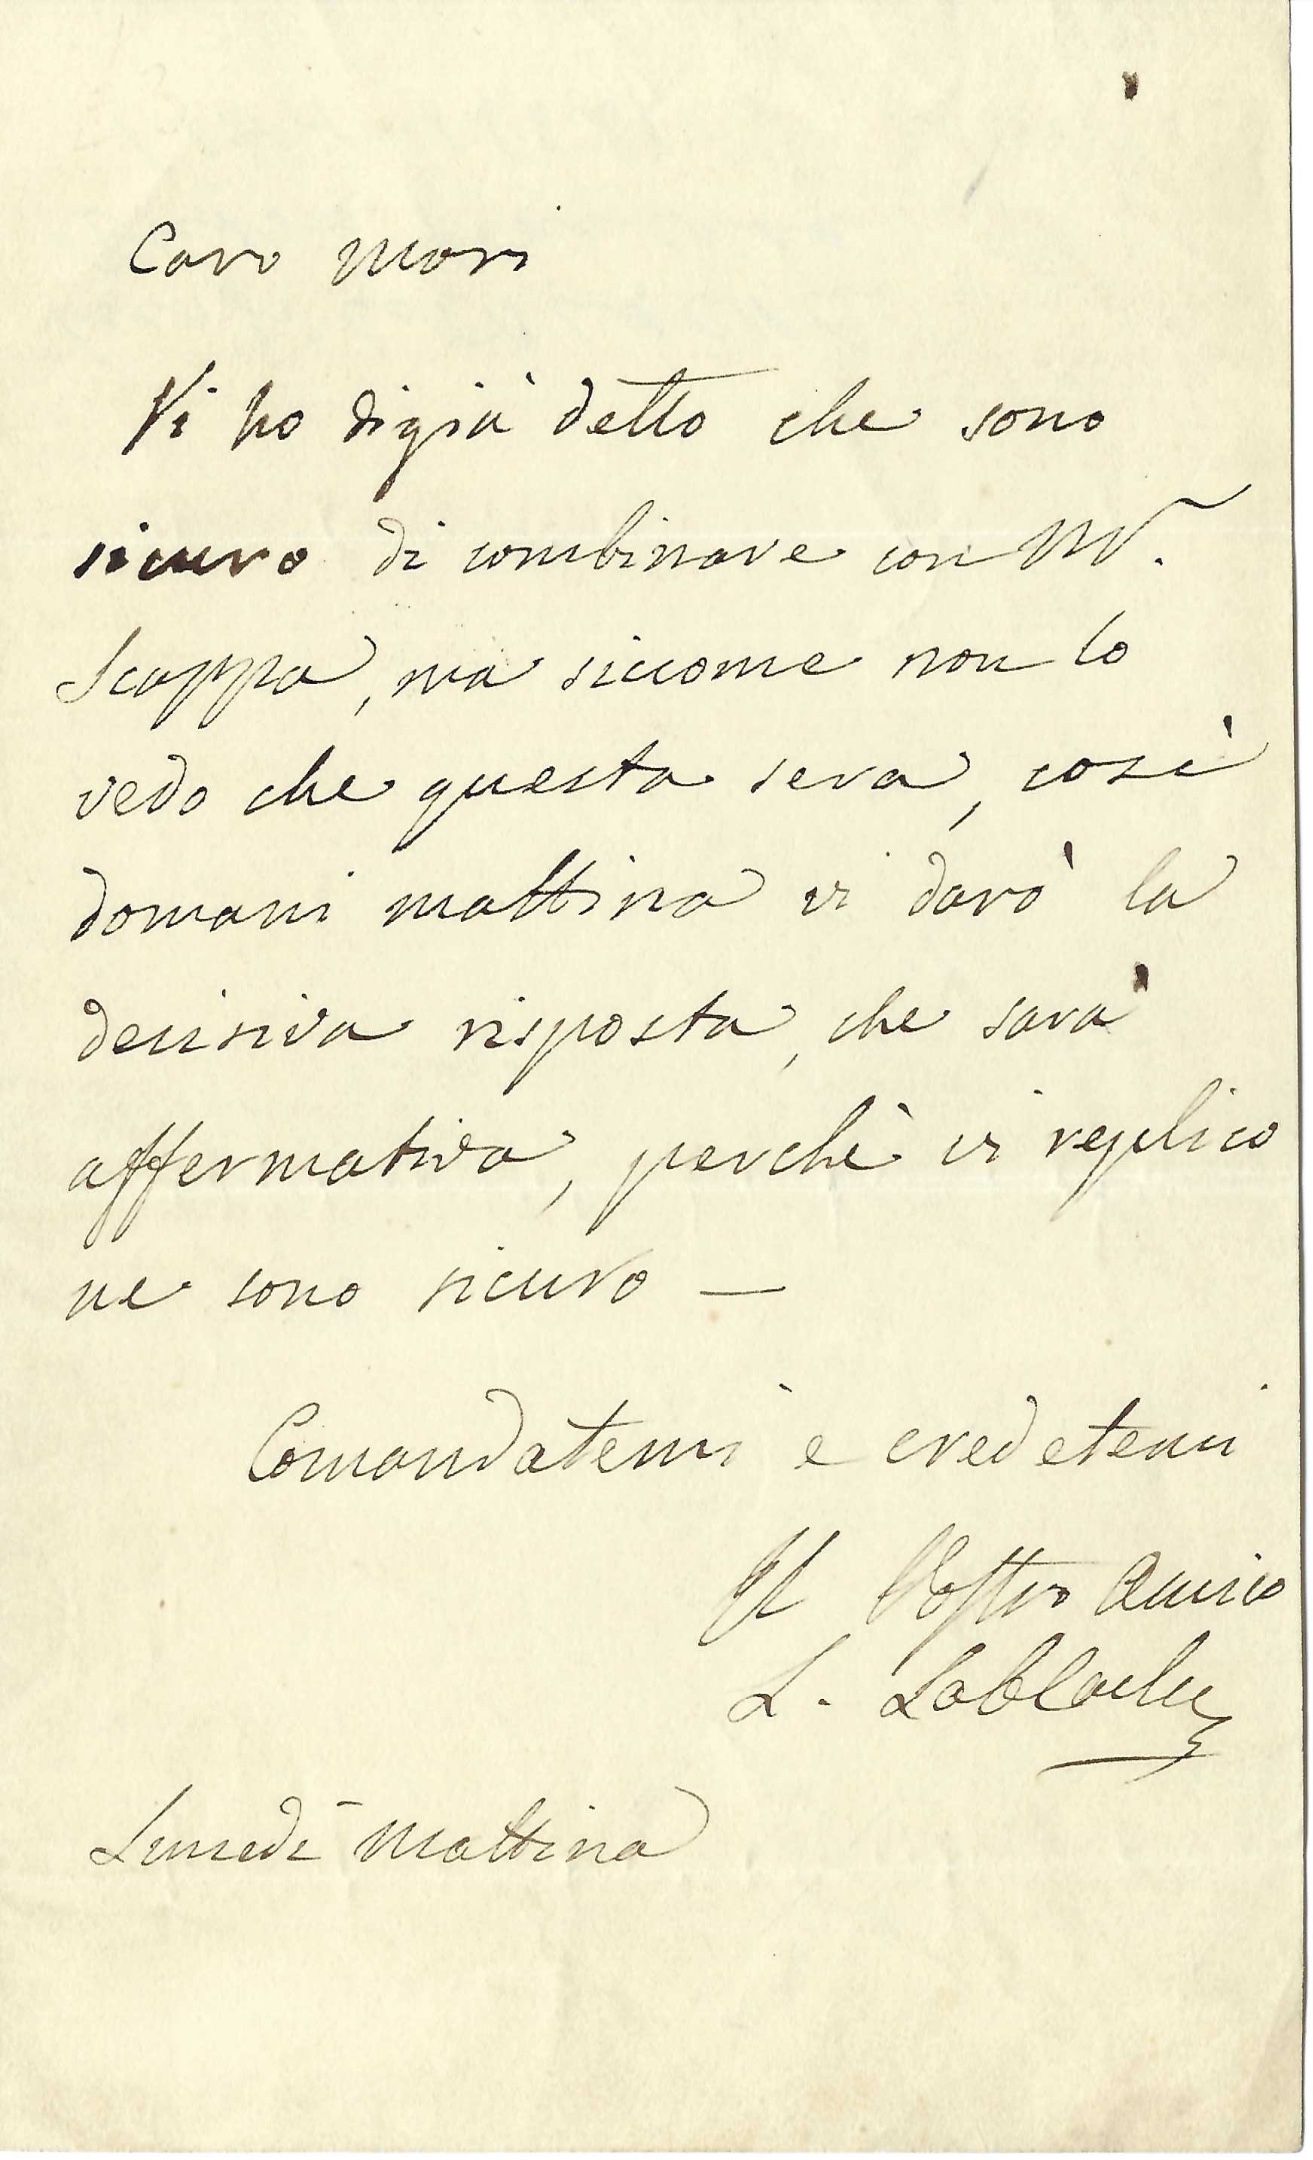 Caro Mori
Vi ho digià detto che sono
sicuro di combinare con Mr.
Scappa, ma siccome non lo
vedo che questa sera, così
domani mattina vi darò la
decisiva risposta, che sarà
affermativa, perchè vi replico
ne sono sicuro —
Comandatemi e credetemi
Il Vostro Amico
L. Lablache
Lunedì Mattina